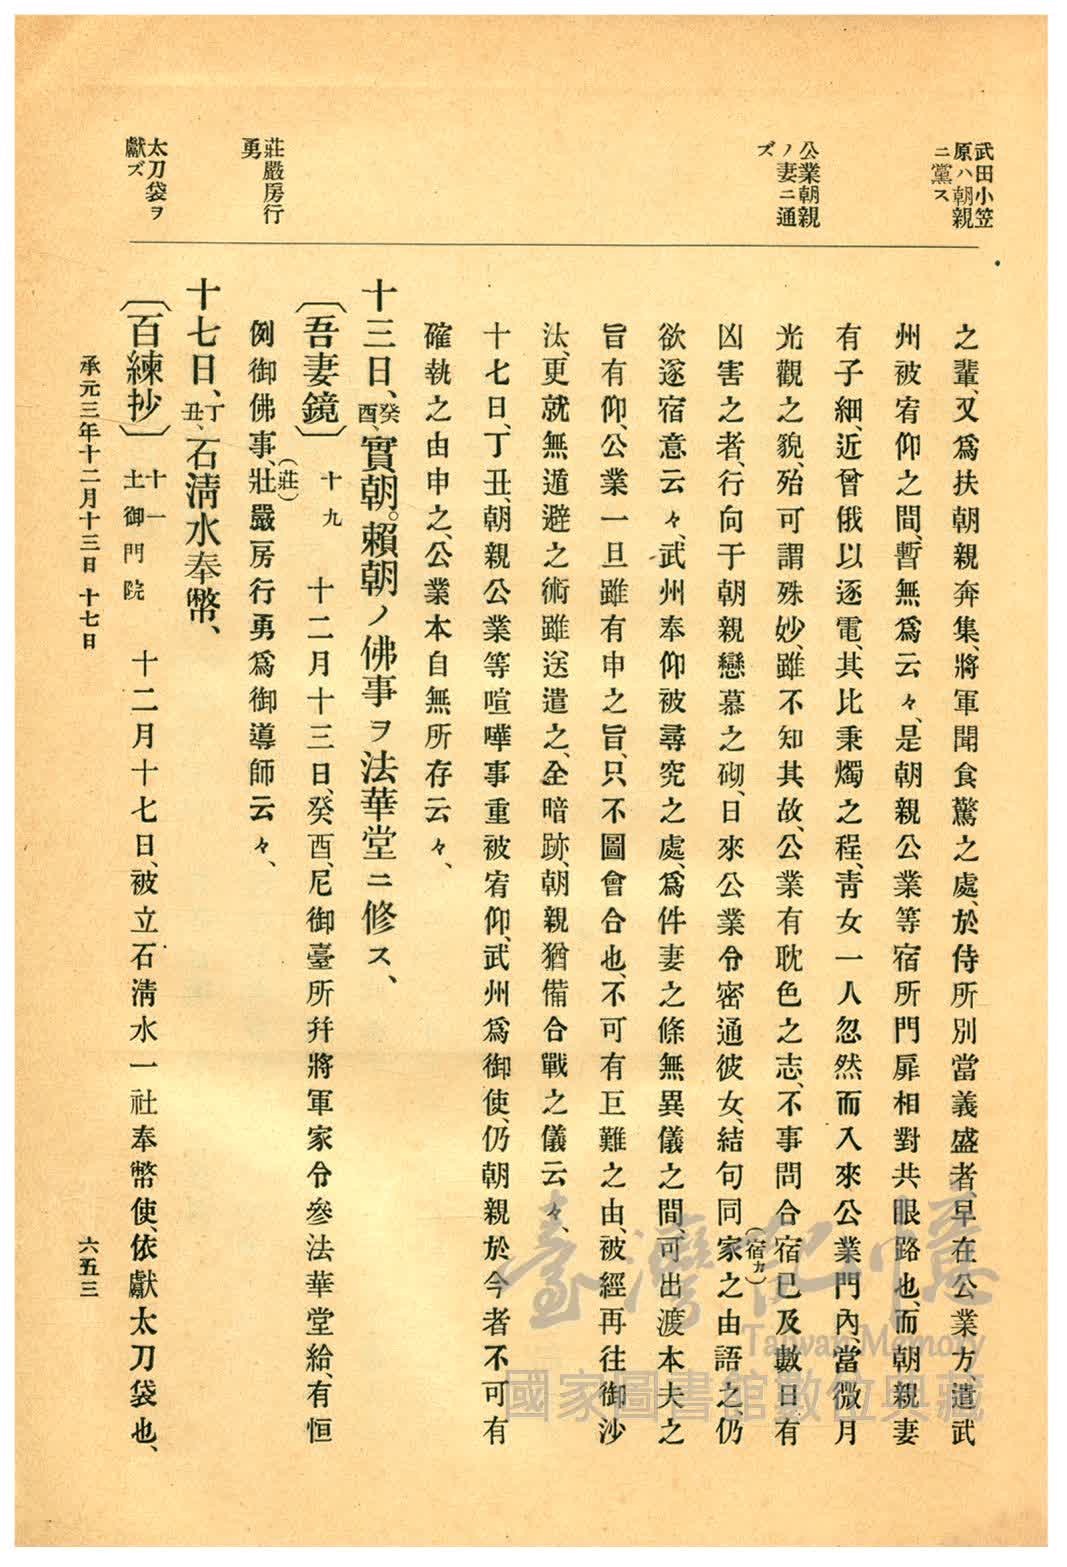 武田小笠
原ハ朝親
ニ黨ス
公業朝親
ノ妻ニ通
ズ
莊嚴房行
勇
太刀袋ヲ
獻ズ
之輩、又爲扶朝親奔集、將軍聞食驚之處、於侍所別當義盛者早在公業方、遣武
州被宥仰之間、暫無爲云々、是朝親公業等宿所門扉相對共眼路也、而朝親妻
有子細、近曾俄以逐電、其比秉燭之程、靑女一人忽然而入來公業門內、當微月
光觀之貌、殆可謂殊妙、雖不知其故、公業有耽色之志、不事問合宿已及數日有
凶害之者、行向于朝親戀慕之砌、日來公業令密通彼女、結句同家之由語之、仍
(宿カ)
欲遂宿意云々、武州奉仰被尋究之處、爲件妻之條無異儀之間、可出渡本夫之
旨有仰、公業一旦雖有申之旨、只不圖會合也、不可有巨難之由、被經再往御沙
汰、更就無遁避之術、雖送遣之、全暗跡、朝親猶備合戰之儀云々、
十七日、丁丑、朝親公業等喧嘩事重被宥仰、武州爲御使、仍朝親於今者不可有
確執之由申之、公業本自無所存云々、
十三日、癸酉、實朝。賴朝ノ佛事ヲ法華堂ニ修ス、
〔吾妻鏡〕 十九 十二月十三日、癸酉、尼御臺所幷將軍家令參法華堂給、有恒
例御佛事、壯嚴房行勇爲御導師云々、
(莊)
十七日、丁丑、石淸水奉幣、
〔百練抄〕 十一 土御門院 十二月十七日、被立石淸水一社奉幣使、依獻太刀袋也、
承元三年十二月十三日 十七日
六五三
臺灣記憶
Taiwan Memory
國家圖書館數位典藏